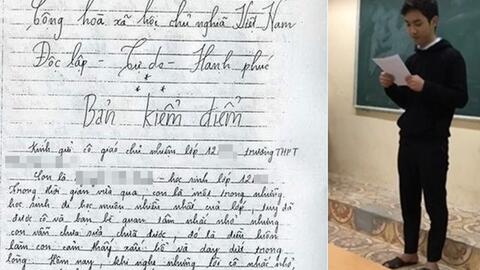 Cộng hòa xã hội chủ nghĩa Việt Nam
Độc lập - Tự do - Hạnh phúc
Bản kiểm điểm
Kính gửi cô giáo chủ nhiệm lớp 12 trường THPT
Con là - học sinh lớp 12
Trong thời gian vừa qua, con là một trong những
học sinh đi học muộn nhiều nhất của lớp, tuy đã
được cô và bạn bè quan tâm nhắc nhở nhưng
con vẫn chưa sửa chữa được, đó là điều luôn
làm con cảm thấy xấu hổ và day dứt trong
lòng. Hôm nay, khi nghe những lời cô nhắc nhở,